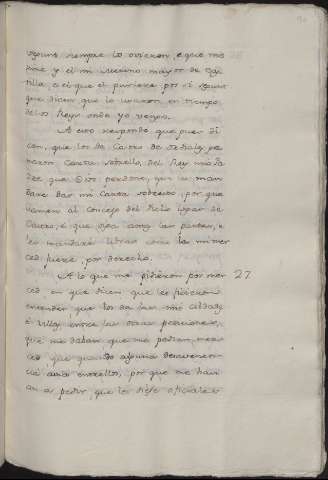 segund siempre lo ovieron, e que me
sirve y el mi Merino mayor de Cas
tilla, o el que el pusiere por si segund
que dicen que lo usaron en tiempo
de los Reyes onde yo vengo.
A esto respondo que pues di
cen, que los de Castro de
naron Carta sobrello, del Rey mio Pa
dre que Dios perdone, que yo man
dare dar mi Carta sobresto, por que
llamen al Concejo del dicho logar de
Castro, e que oyan amas las partes, e
lo mandaré librar como la mi mer
ced fuere, por derecho.
A lo que me pidieron por mer 27
ced en que dicen que se ficieron
entender, que los de las mis Cibdades
é Villas entre las otras peticiones,
que me daban que me pedian mer
ced que quando alguna desavenen
cia avia entrellos, por que me havi
an a pedir, que les diese oficiales